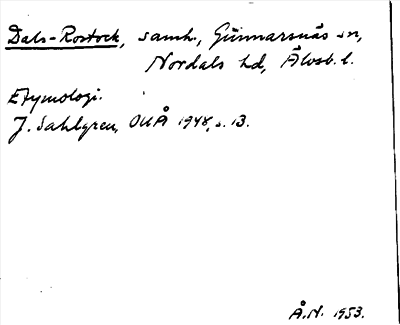 Dals-Rostock, samh., Gunnarsnäs sn,
Nordals hd, Älvsb. l.
Etymologi.
J. Sahlgren, OUÅ 1948, s. 13.
Å.N. 1953.